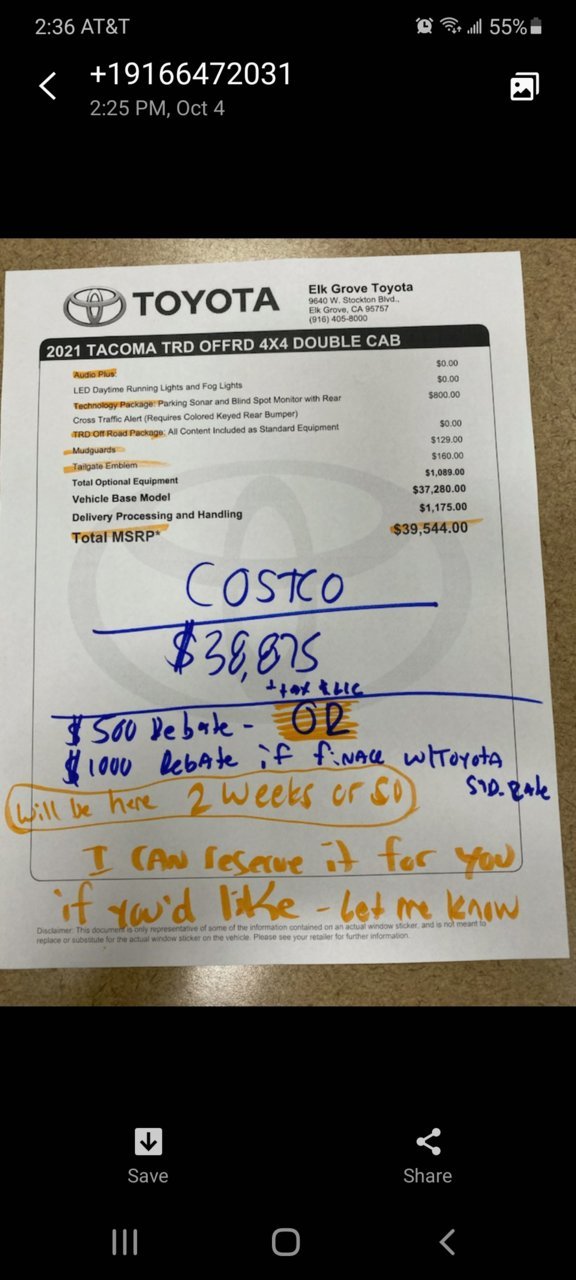 2:36 AT&T
55%
+19166472031
2:25 PM, Oct 4
TOYOTA
Elk Grove Toyota
9640 W. Stockton Blvd.,
Elk Grove, CA 95757
(916) 405-8000
2021 TACOMA TRD OFFRD 4X4 DOUBLE CAB
Audio Plus: $0.00
LED Daytime Running Lights and Fog Lights $0.00
Technology Package: Parking Sonar and Blind Spot Monitor with Rear $800.00
Cross Traffic Alert (Requires Colored Keyed Rear Bumper)
TRD Off Road Package: All Content Included as Standard Equipment $0.00
Mudguards $129.00
Tailgate Emblem $160.00
Total Optional Equipment $1,089.00
Vehicle Base Model $37,280.00
Delivery Processing and Handling $1,175.00
Total MSRP* $39,544.00
COSTCO
$38,875
+ tax & LIC
$500 Rebate - OR
$1000 Rebate if finace w/Toyota
STD. Rate
Will be here 2 weeks or so
I CAN reserve it for you
if you'd like - Let me know
Disclaimer: This document is only representative of some of the information contained on an actual window sticker, and is not meant to
replace or substitute for the actual window sticker on the vehicle. Please see your retailer for further information.
Save
Share